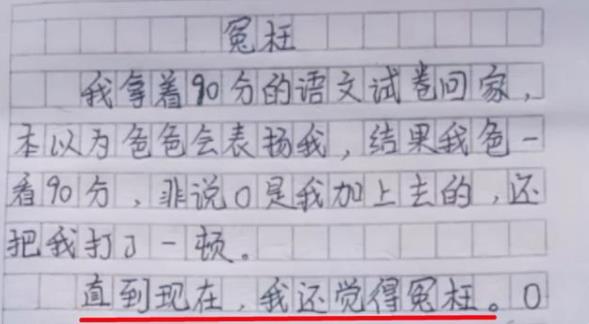 冤枉
我拿着90分的语文试卷回家，
本以为爸爸会表扬我，结果我爸一
看90分，非说0是我加上去的，还
把我打了一顿。
直到现在，我还觉得冤枉。0